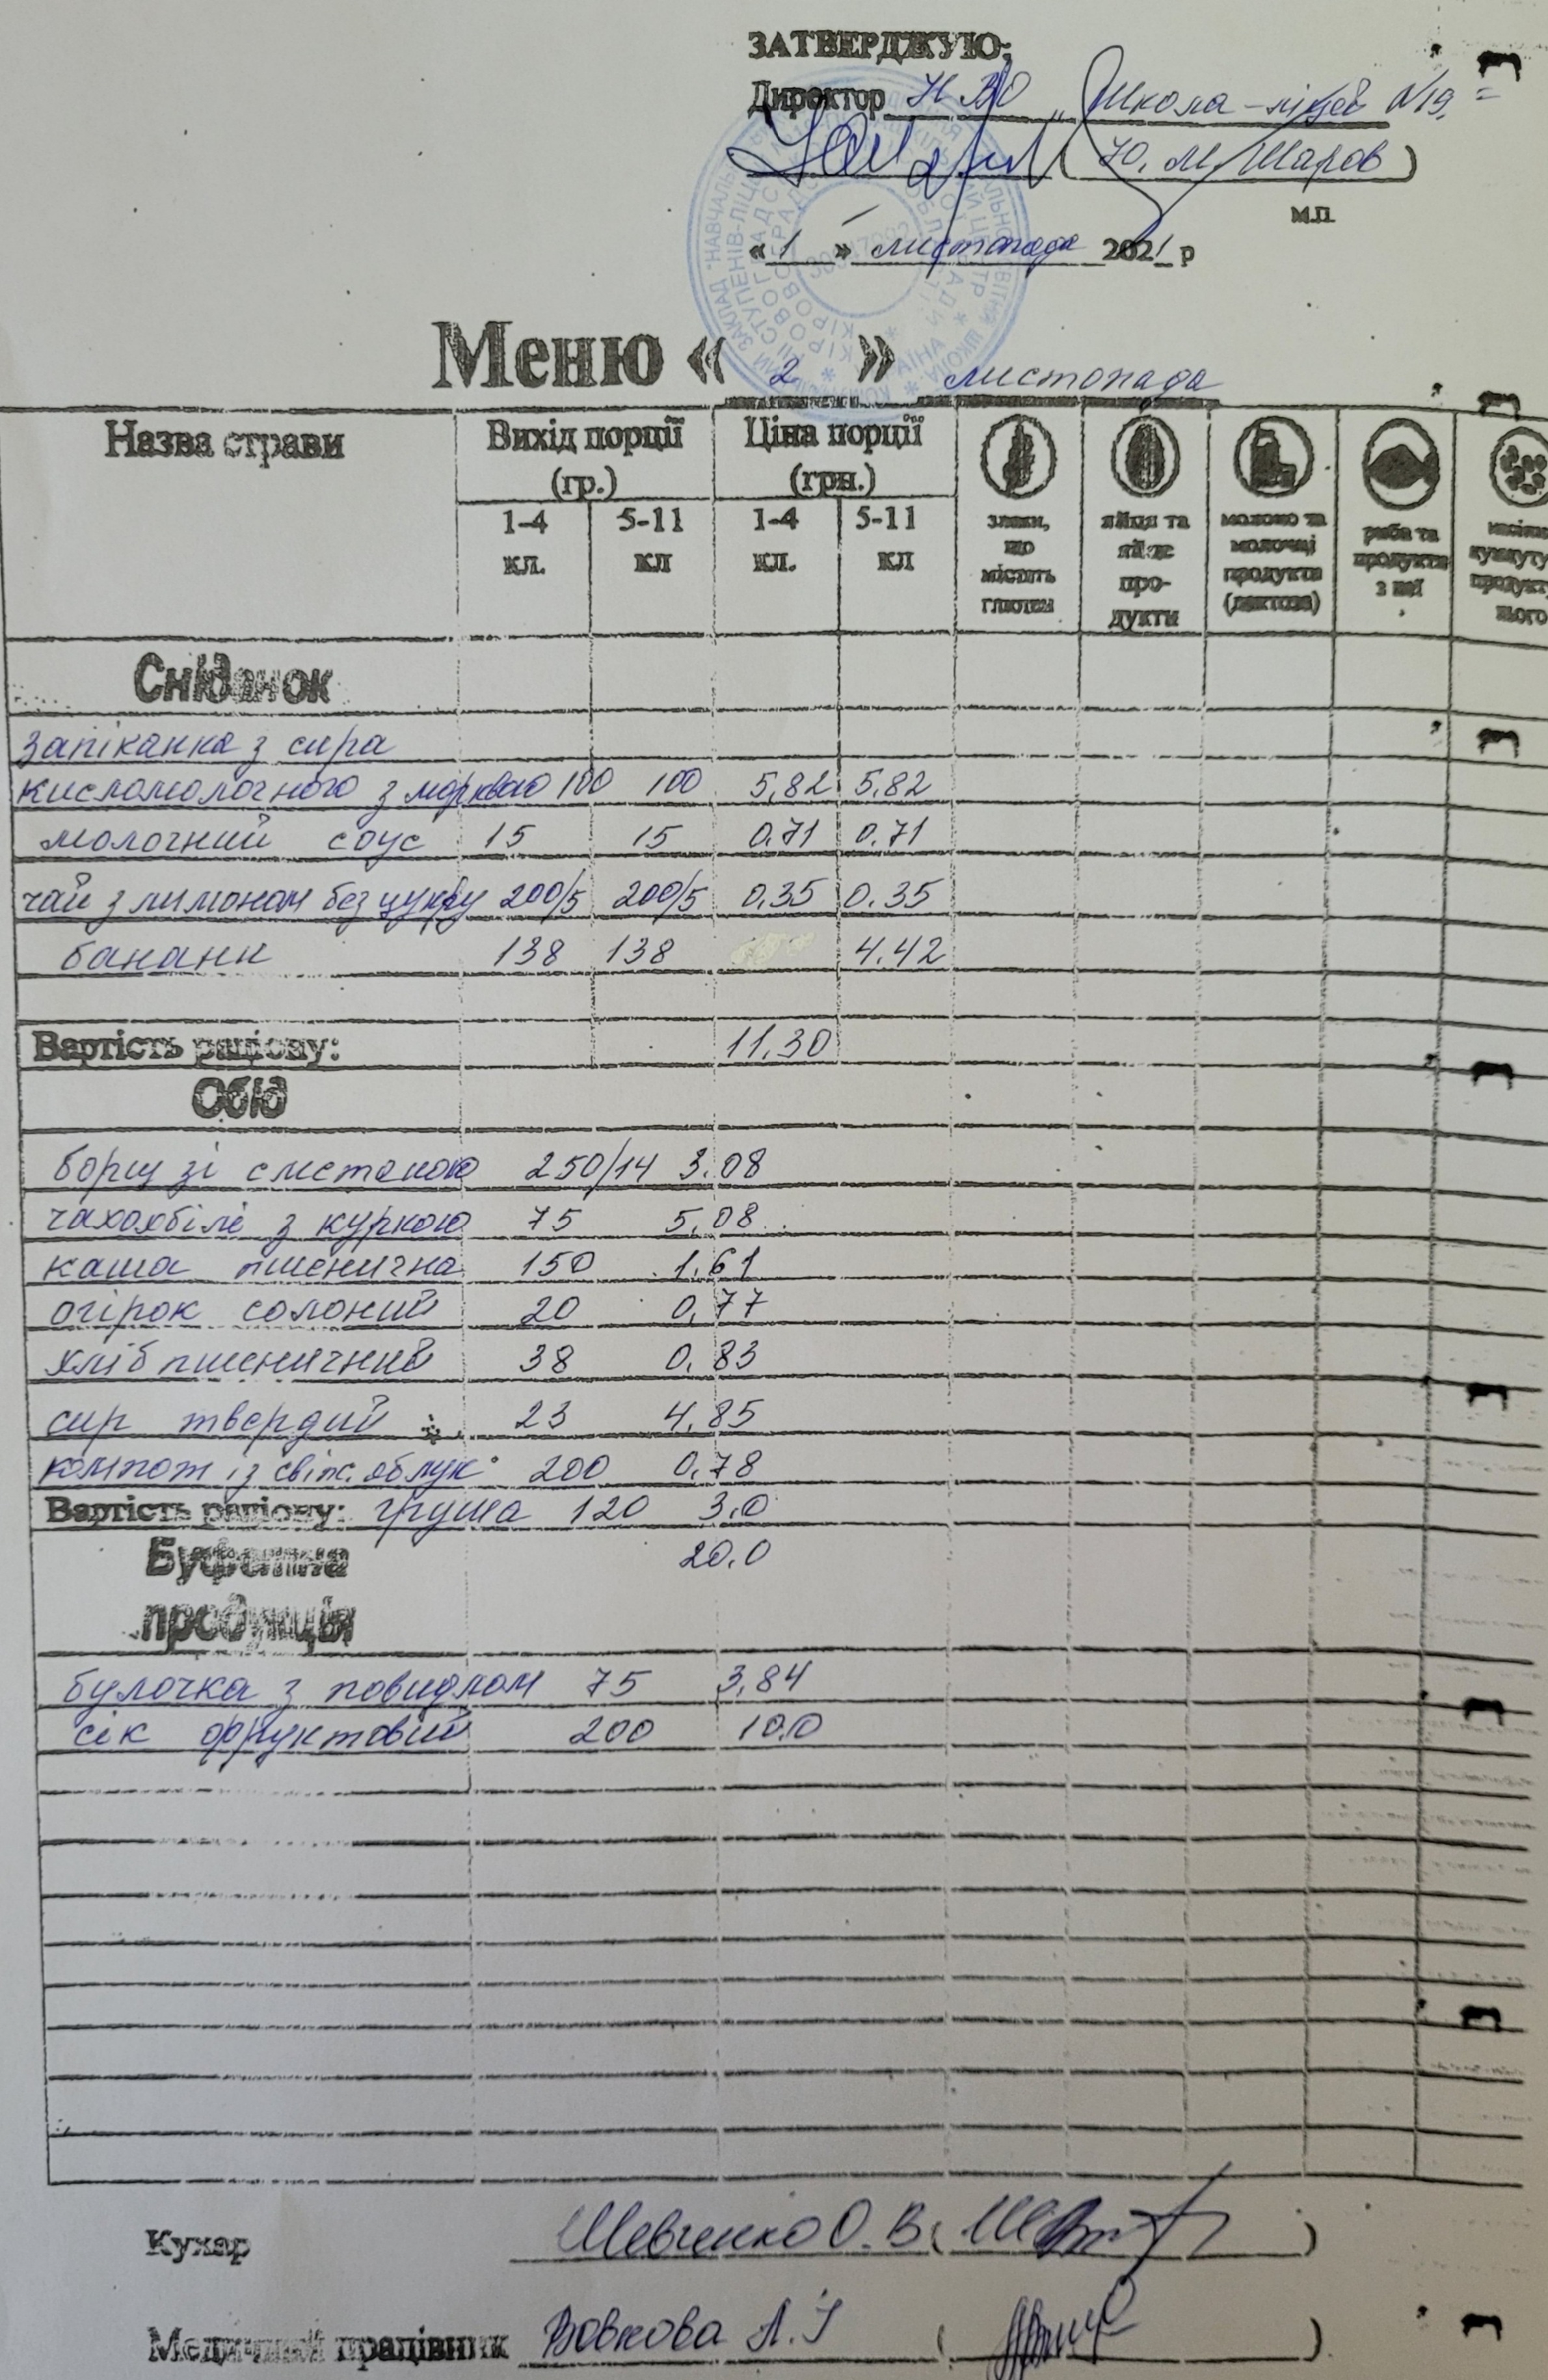 ЗАТВЕРДЖУЮ;
Директор НВО „Школа-ліцей N19"
(Ю. М. Шаров)
м.п.
« 1 » листопада 2021 р
Меню « 2 » листопада
Назва страви Вихід порції (гр.) Ціна порції (грн.)
1-4 кл. 5-11 кл 1-4 кл. 5-11 кл
злаки, що містять глютен
яйця та яйце про-дукти
молоко та молочні продукти (лактоза)
риба та продукти з неї
Сніданок
Запіканка з сира
кисломолочного з морквою 100 100 5,82 5,82
молочний соус 15 15 0,71 0.71
чай з лимоном без цукру 200/5 200/5 0,35 0.35
банани 138 138 4.42
Вартість раціону: 11.30
Обід
борщ зі сметаною 250/14 3.08
чахохбілі з куркою 75 5,08
каша пшенична 150 1,61
огірок солоний 20 0,77
хліб пшеничний 38 0,83
сир твердий 23 4,85
компот із свіж. яблук 200 0,78
Вартість раціону: груша 120 3.0
20.0
Буфетна
продукція
булочка з повидлом 75 3,84
сік фруктовий 200 10.0
Кухар Шевченко О.В. ( )
Медичний працівник Вовкова Л.І ( )